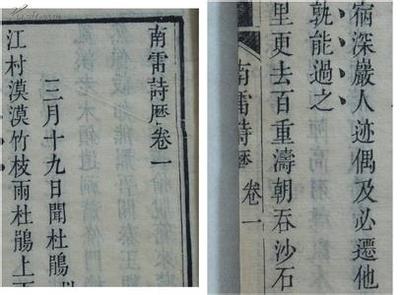 南雷詩厯卷一
三月十九日聞杜鵑
江村漠漠竹枝雨杜鵑上
深嚴人迹偶及必遷他
孰能過之
里更去百重濤朝吞沙石
南雷詩厯 卷一